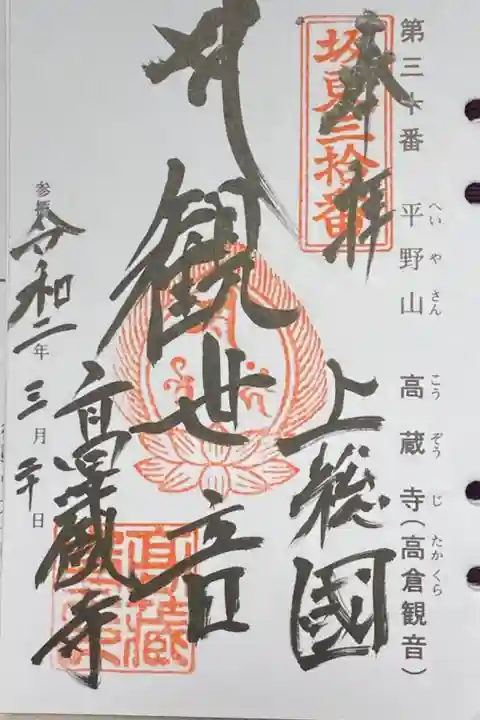 第三十番 平野山 高蔵寺(高倉観音)
へいやさん こうぞうじ たかくら
坂東三拾番
奉拝
上総國
観世音
高蔵寺
高蔵
参拝 令和二年三月二十日